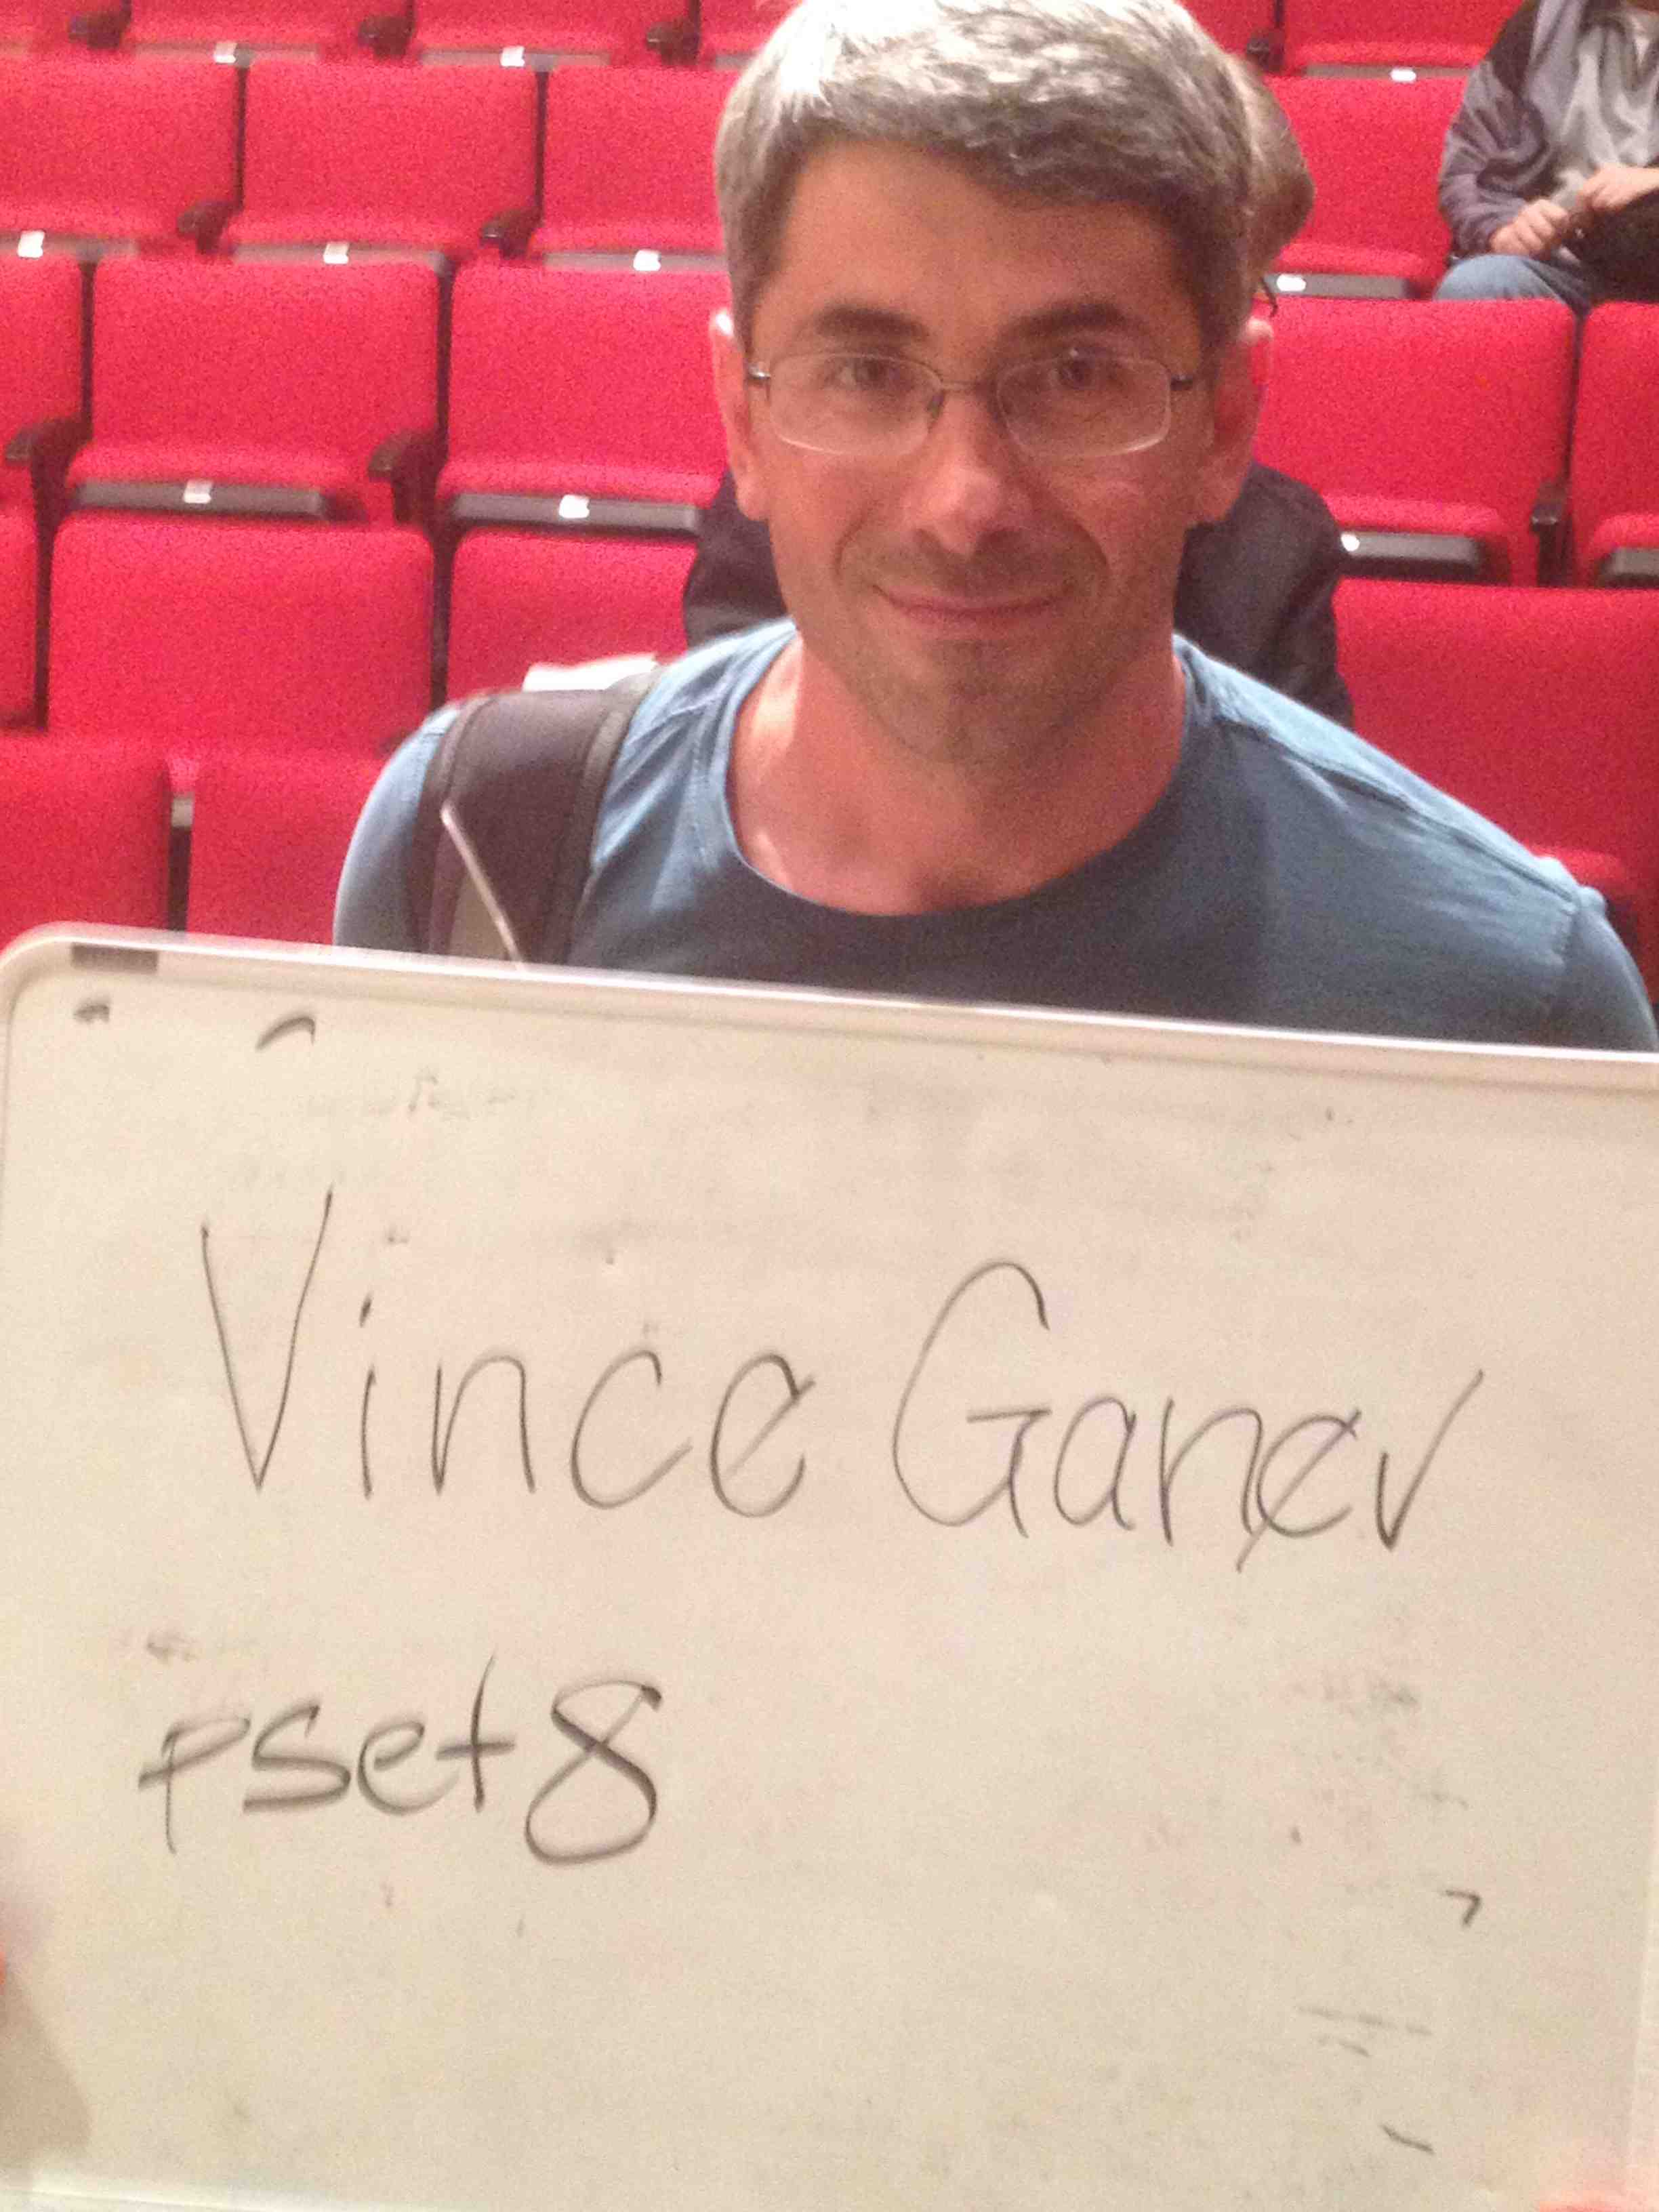 Vince Ganev
pset8